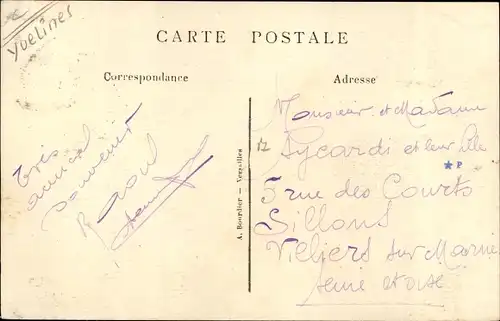 Yvelines
CARTE POSTALE
Correspondance
Adresse
Très
amical
souvenir
Raoul
A. Bourdier — Versailles
12
Monsieur et Madame
Sycardi et leur fille
P
5 rue des Courts
Sillons
Villiers sur Marne
Seine et Oise